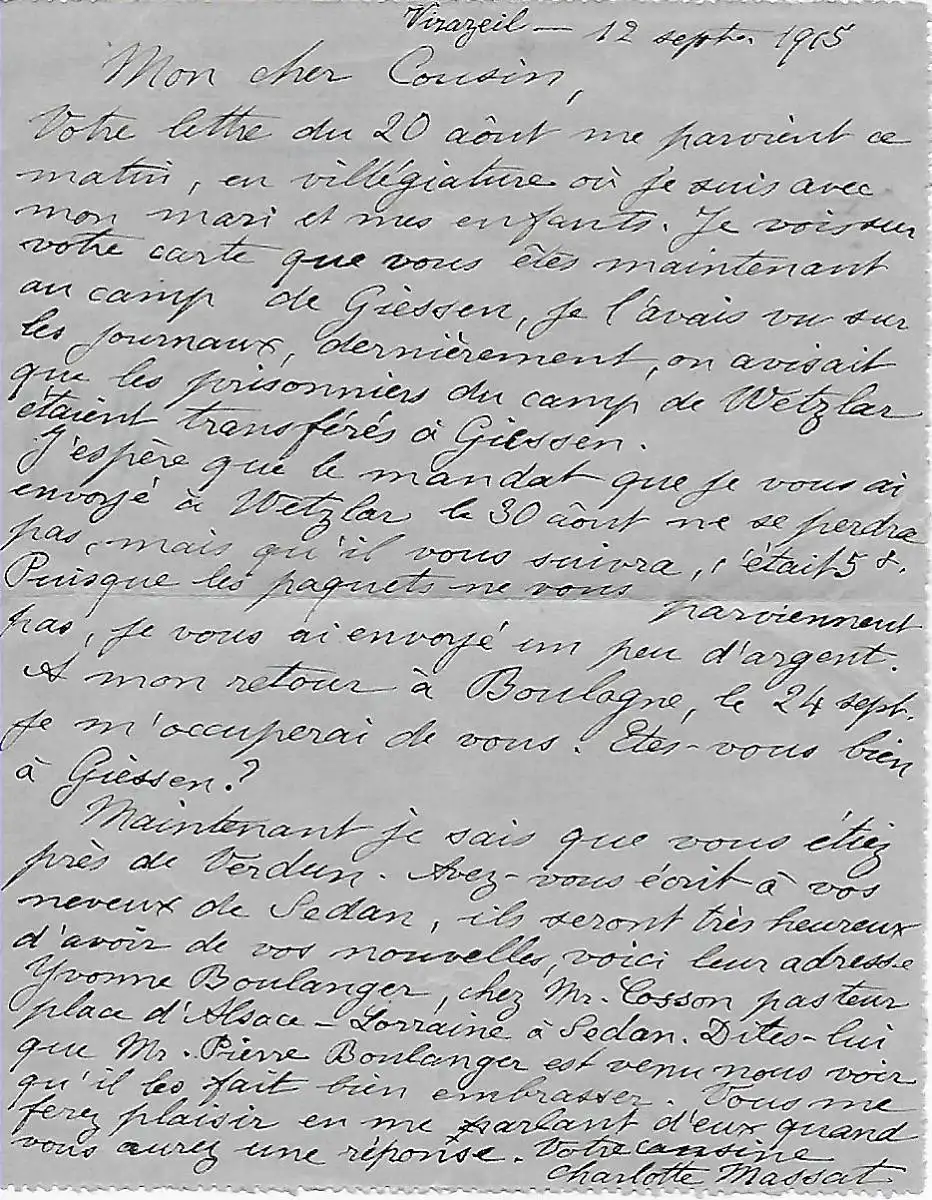 Virazeil — 12 septre 1915
Mon cher Cousin,
Votre lettre du 20 aôut me parvient ce
matin, en villégiature où je suis avec
mon mari et mes enfants. Je vois sur
votre carte que vous êtes maintenant
au camp de Giessen, je l'avais vu sur
les journaux, dernièrement, on avisait
que les prisonniers du camp de Wetzlar
étaient transférés à Giessen.
J'espère que le mandat que je vous ai
envoyé à Wetzlar le 30 aôut ne se perdra
pas, mais qu'il vous suivra, c'était 5 f.
Puisque les paquets ne vous parviennent
pas, je vous ai envoyé un peu d'argent.
A mon retour à Boulogne, le 24 sept.
je m'occuperai de vous. Etes-vous bien
à Gièssen?
Maintenant je sais que vous étiez
près de Verdun. Avez-vous écrit à vos
neveux de Sedan, ils seront très heureux
d'avoir de vos nouvelles, voici leur adresse
Yvonne Boulanger, chez Mr. Cosson pasteur
place d'Alsace-Lorraine à Sedan. Dites-lui
que Mr. Pierre Boulanger est venu nous voir
qu'il les fait bien embrasser. Vous me
ferez plaisir en me parlant d'eux quand
vous aurez une réponse. Votre cousine
Charlotte Massat